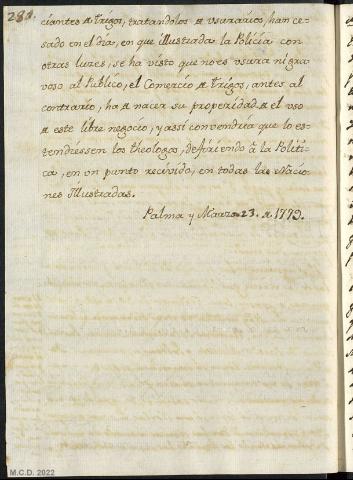 282.
ciantes de Trigos, tratandolos de vsurarios, han ce-
sado en el dia, en que illustrada la Policia con
otras luzes, se ha visto que no es vsura ni gra-
voso al Publico, el Comercio de Trigos, antes al
contrario, ha de nacer su properidad de el vso
de este libre negocio, y assi convendria que lo es-
tendiessen los theologos, defiriendo à la Politi-
ca, en un punto recivido, en todas las Nacio-
nes Illustradas.
Palma y Marzo 23. de 1773.
M.C.D. 2022